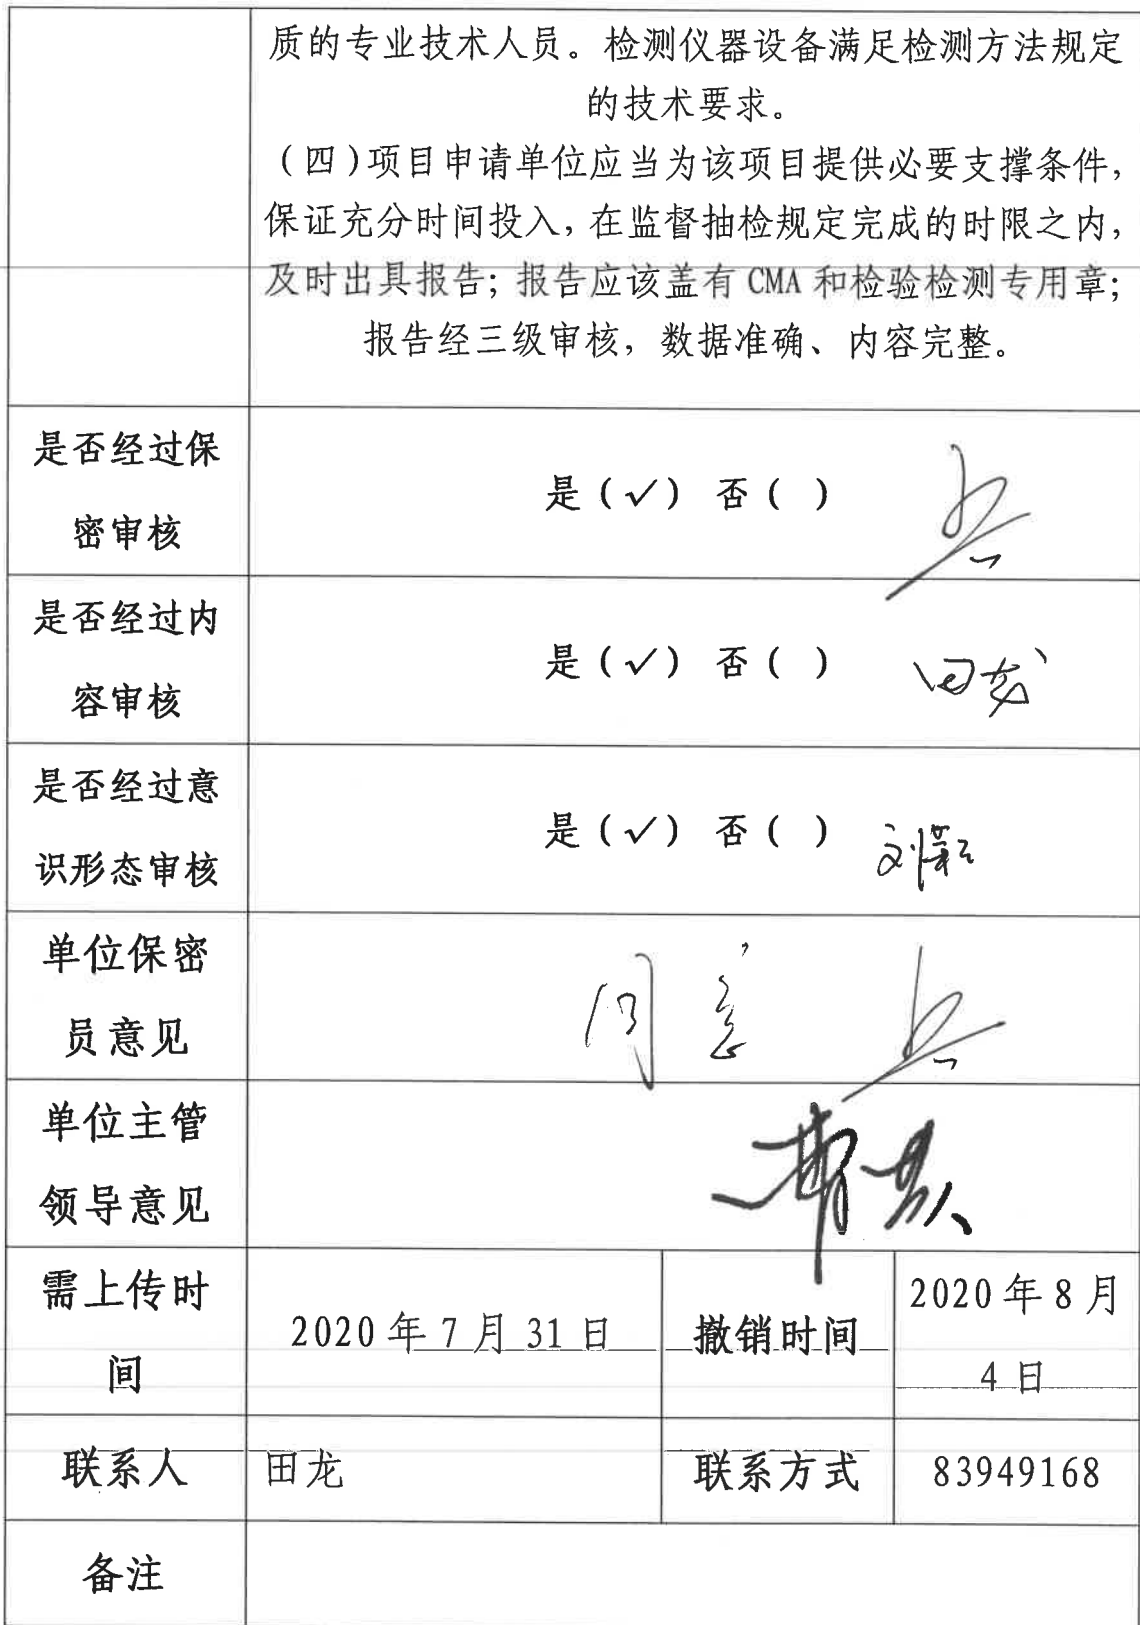 质的专业技术人员。检测仪器设备满足检测方法规定
的技术要求。
（四）项目申请单位应当为该项目提供必要支撑条件，
保证充分时间投入，在监督抽检规定完成的时限之内，
及时出具报告；报告应该盖有 CMA 和检验检测专用章；
报告经三级审核，数据准确、内容完整。
是否经过保
密审核
是（✓） 否（ ）
是否经过内
容审核
是（✓） 否（ ） 田龙
是否经过意
识形态审核
是（✓） 否（ ）
单位保密
员意见
同意
单位主管
领导意见
需上传时
间
2020 年 7 月 31 日
撤销时间
2020 年 8 月
4 日
联系人
田龙
联系方式
83949168
备注